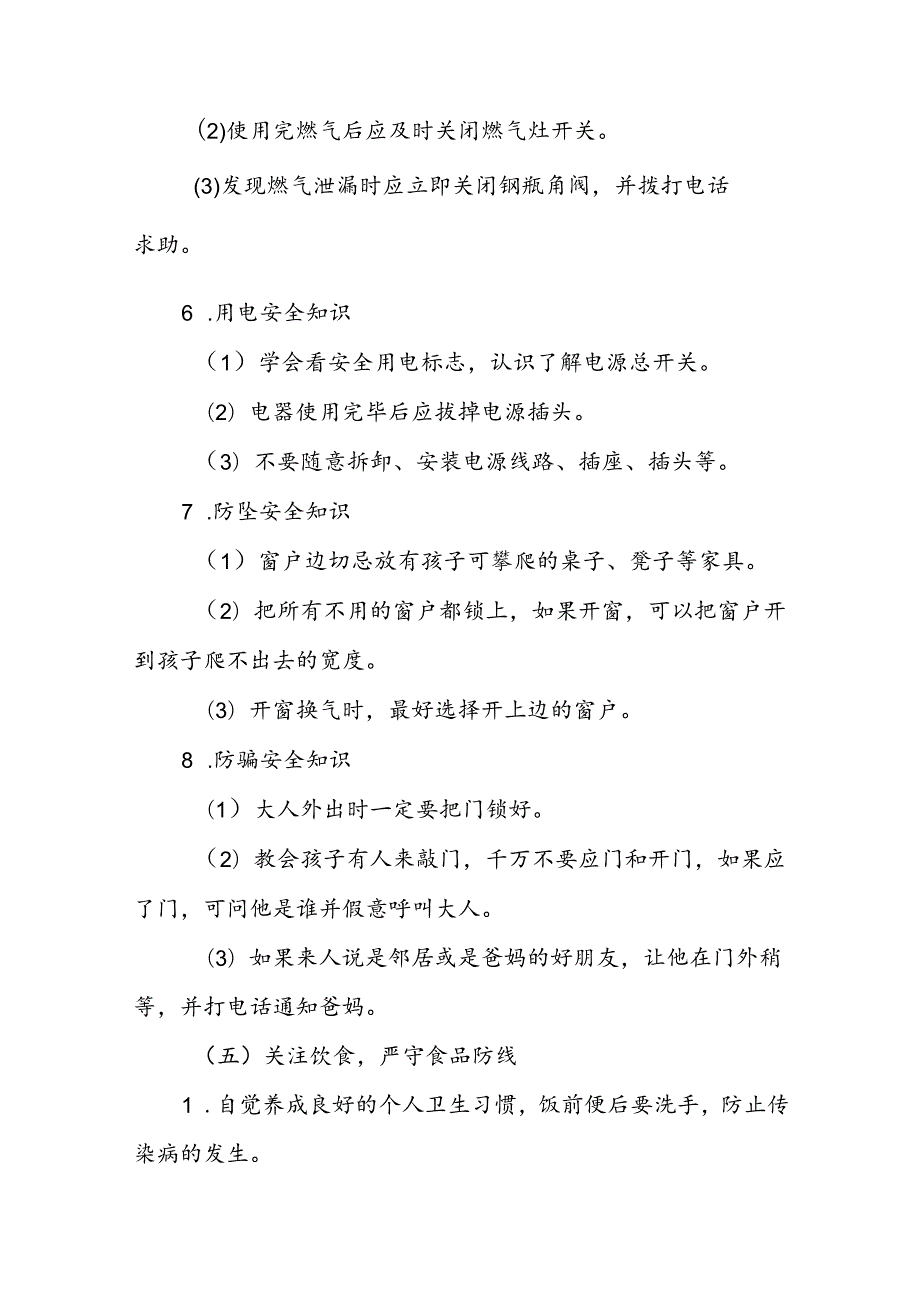 (2)使用完燃气后应及时关闭燃气灶开关。
(3)发现燃气泄漏时应立即关闭钢瓶角阀，并拨打电话
求助。
6 .用电安全知识
（1）学会看安全用电标志，认识了解电源总开关。
(2）电器使用完毕后应拔掉电源插头。
（3）不要随意拆卸、安装电源线路、插座、插头等。
7 .防坠安全知识
（1）窗户边切忌放有孩子可攀爬的桌子、凳子等家具。
（2）把所有不用的窗户都锁上，如果开窗，可以把窗户开
到孩子爬不出去的宽度。
(3）开窗换气时，最好选择开上边的窗户。
8 .防骗安全知识
(1）大人外出时一定要把门锁好。
（2）教会孩子有人来敲门，千万不要应门和开门，如果应
了门，可问他是谁并假意呼叫大人。
(3）如果来人说是邻居或是爸妈的好朋友，让他在门外稍
等，并打电话通知爸妈。
（五）关注饮食，严守食品防线
1 .自觉养成良好的个人卫生习惯，饭前便后要洗手，防止传
染病的发生。